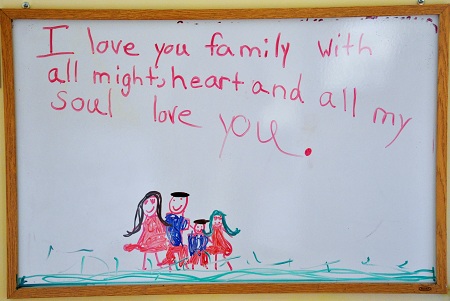 I love you family with
all might, heart and all my
soul love you.